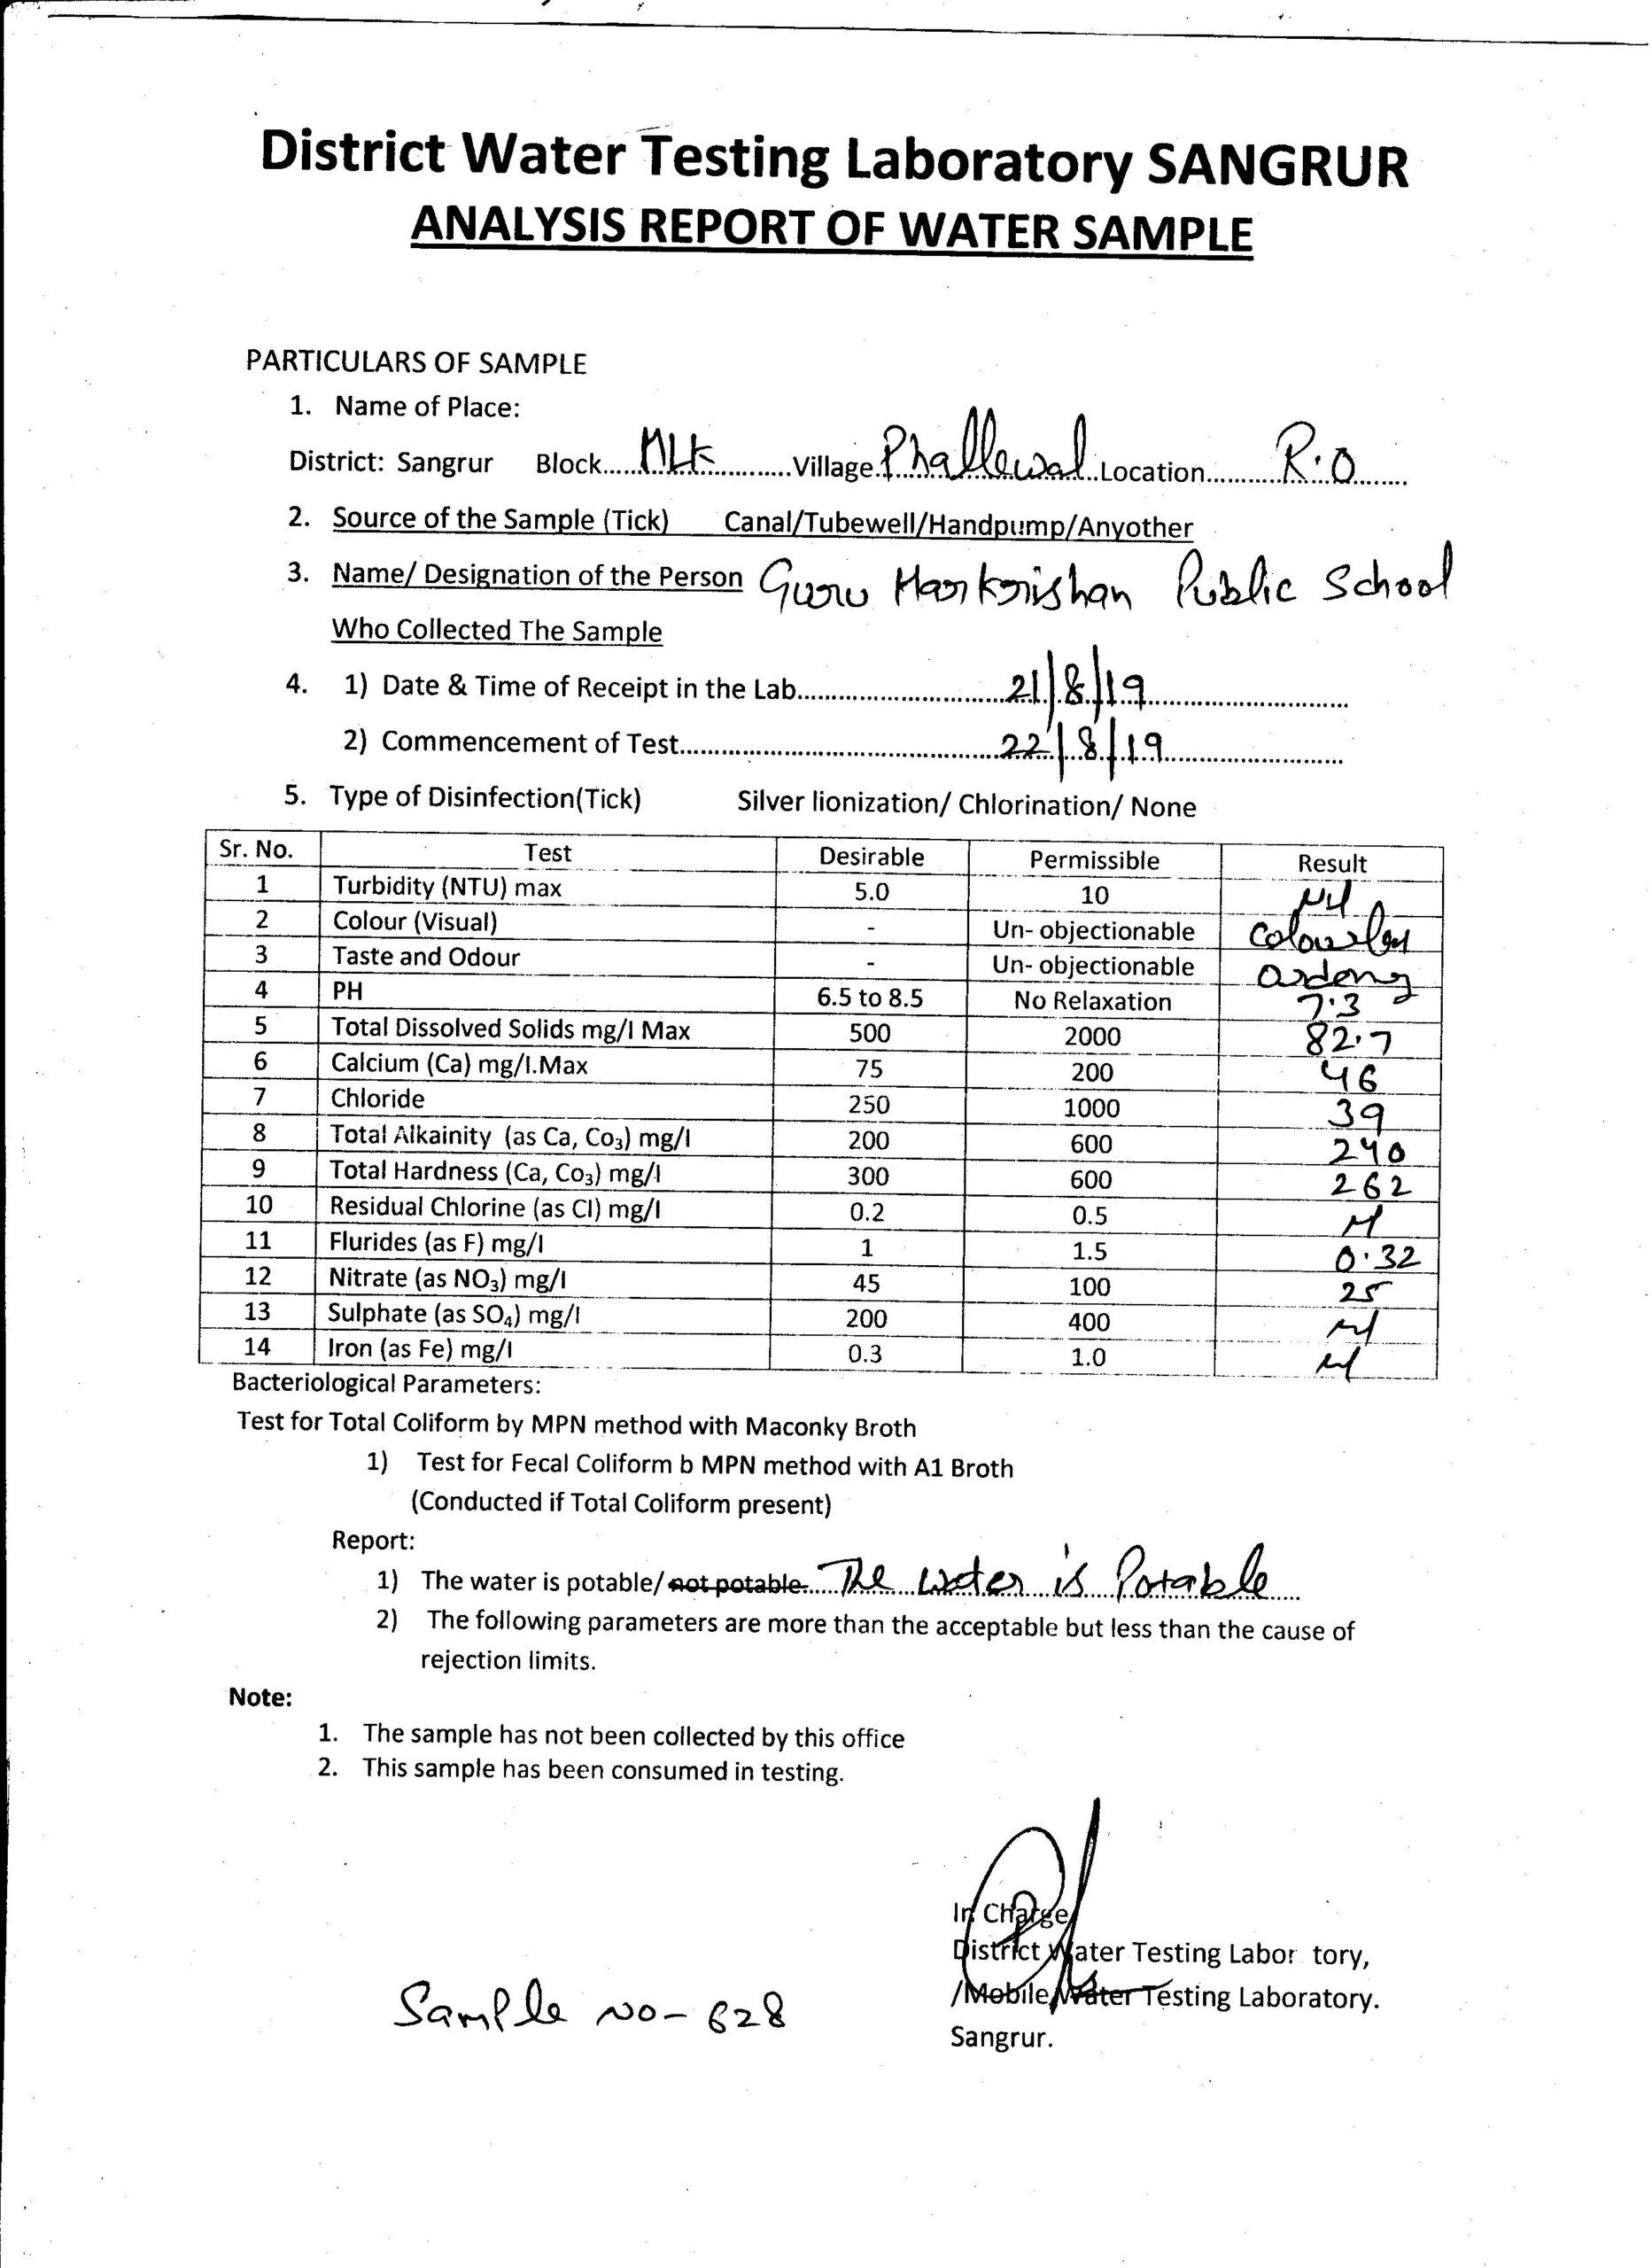 District Water Testing Laboratory SANGRUR
ANALYSIS REPORT OF WATER SAMPLE
PARTICULARS OF SAMPLE
1. Name of Place:
District: Sangrur Block.....MLK............Village.Phallewal..Location...........R.O........
2. Source of the Sample (Tick) Canal/Tubewell/Handpump/Anyother
3. Name/ Designation of the Person Guru Harkrishan Public School
Who Collected The Sample
4. 1) Date & Time of Receipt in the Lab..............................21/8/19..............................
2) Commencement of Test..............................22/8/19..............................
5. Type of Disinfection(Tick) Silver Iionization/ Chlorination/ None
Sr. No. Test Desirable Permissible Result
1 Turbidity (NTU) max 5.0 10 Nil
2 Colour (Visual) - Un- objectionable
3 Taste and Odour - Un- objectionable
4 PH 6.5 to 8.5 No Relaxation 7.3
5 Total Dissolved Solids mg/l Max 500 2000 82.7
6 Calcium (Ca) mg/l.Max 75 200 46
7 Chloride 250 1000 39
8 Total Alkainity (as Ca, Co₃) mg/l 200 600 240
9 Total Hardness (Ca, Co₃) mg/l 300 600 262
10 Residual Chlorine (as Cl) mg/l 0.2 0.5
11 Flurides (as F) mg/l 1 1.5 0.32
12 Nitrate (as NO₃) mg/l 45 100 25
13 Sulphate (as SO₄) mg/l 200 400
14 Iron (as Fe) mg/l 0.3 1.0
Bacteriological Parameters:
Test for Total Coliform by MPN method with Maconky Broth
1) Test for Fecal Coliform b MPN method with A1 Broth
(Conducted if Total Coliform present)
Report:
1) The water is potable/ not potable......The water is Potable......
2) The following parameters are more than the acceptable but less than the cause of
rejection limits.
Note:
1. The sample has not been collected by this office
2. This sample has been consumed in testing.
In Charge
District Water Testing Labor tory,
/Mobile Water Testing Laboratory.
Sangrur.
Sample No- 628